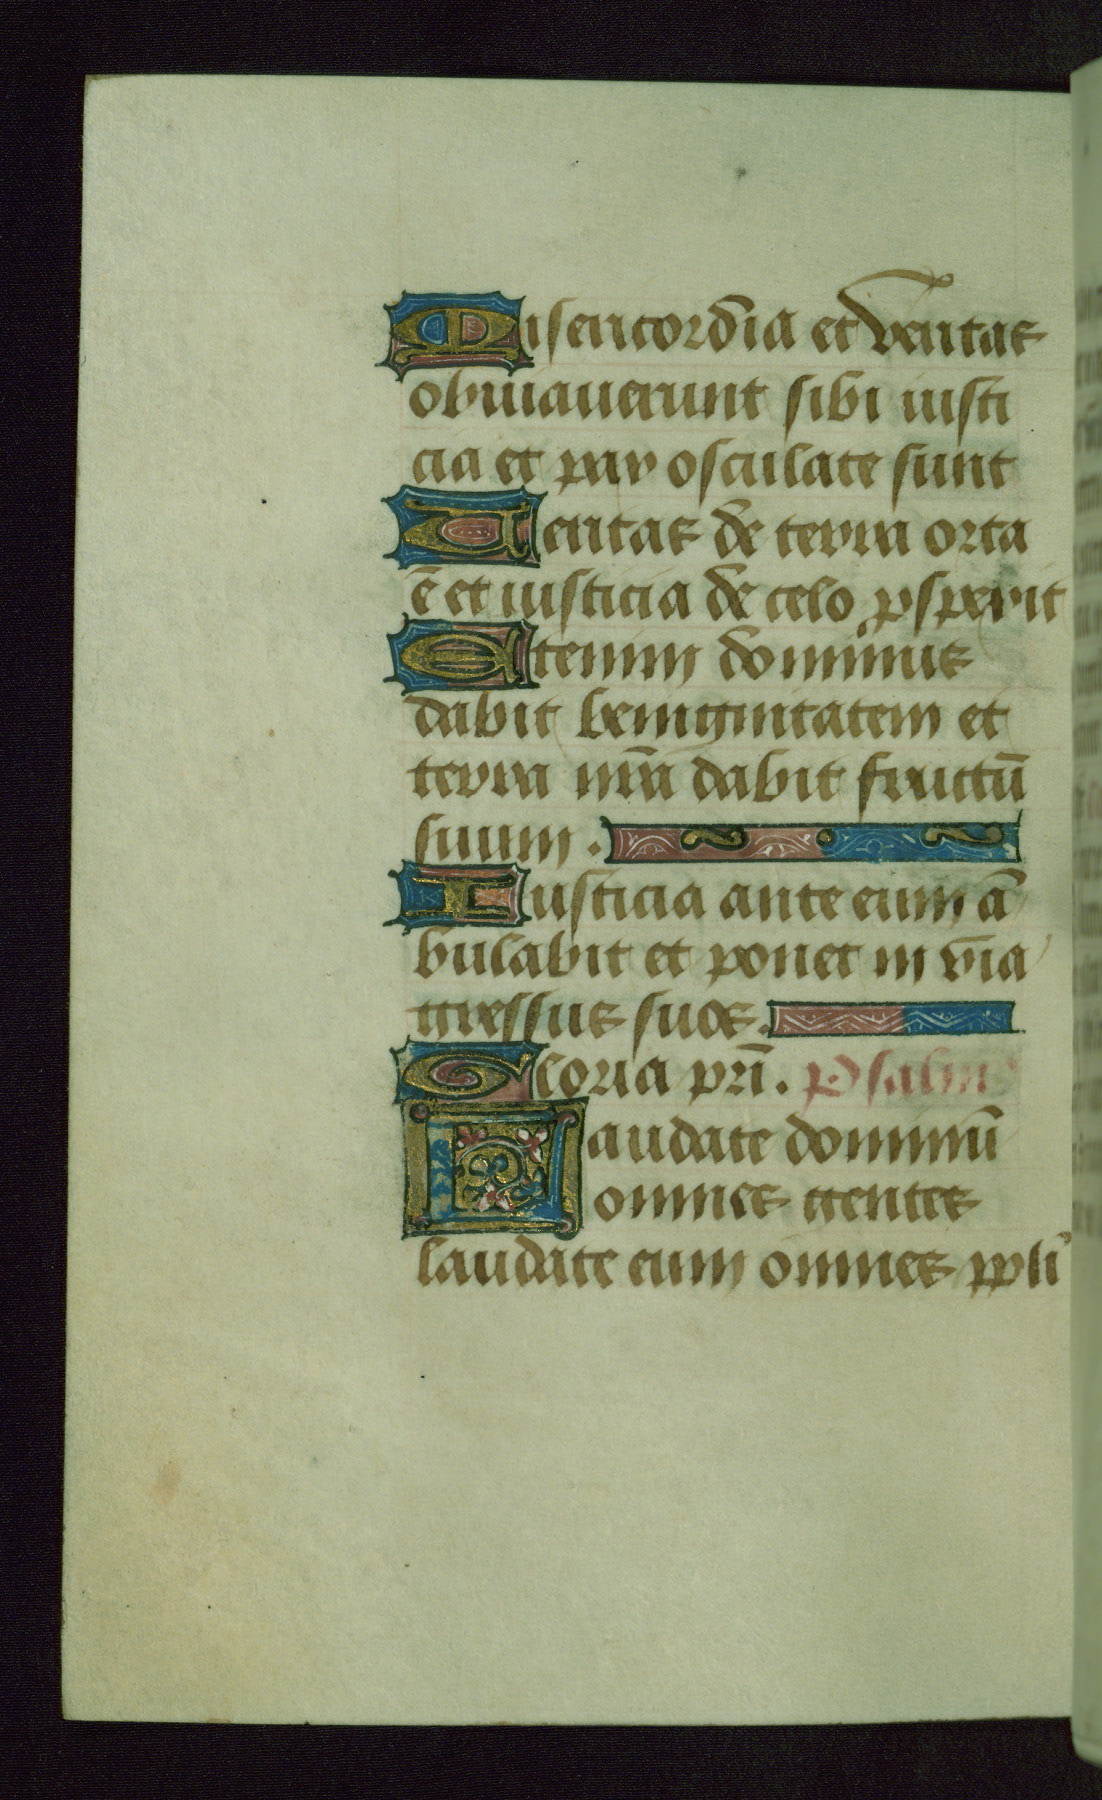 Misericordia et veritas
obviauerunt sibi iusti
cia et pax osculate sunt
Ueritas de terra orta
ē et iusticia de celo ꝓspexit
Etenim dominus
dabit benignitatem et
terra nr̄a dabit fructū
suum.
Iusticia ante eum ā
bulabit et ponet in via
gressus suos.
Gloria pr̄i. Psalm
Laudate dominū
omnes gentes
laudate eum omnes ppl̄i